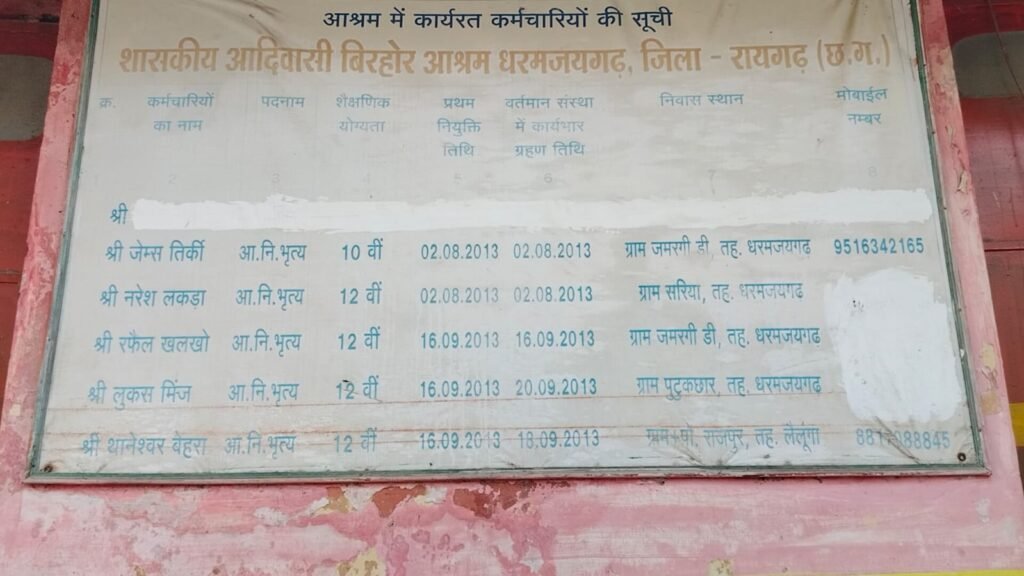 आश्रम में कार्यरत कर्मचारियों की सूची
शासकीय आदिवासी बिरहोर आश्रम धरमजयगढ़, जिला - रायगढ़ (छ.ग.)
क्र. कर्मचारियों का नाम पदनाम शैक्षणिक योग्यता प्रथम नियुक्ति तिथि वर्तमान संस्था में कार्यभार ग्रहण तिथि निवास स्थान मोबाईल नम्बर
2 3 4 5 6 7 8
श्री
श्री जेम्स तिर्की आ.नि.भृत्य 10 वीं 02.08.2013 02.08.2013 ग्राम जमरगी डी, तह. धरमजयगढ़ 9516342165
श्री नरेश लकड़ा आ.नि.भृत्य 12 वीं 02.08.2013 02.08.2013 ग्राम सरिया, तह. धरमजयगढ़
श्री रफैल खलखो आ.नि.भृत्य 12 वीं 16.09.2013 16.09.2013 ग्राम जमरगी डी, तह. धरमजयगढ़
श्री लुकस मिंज आ.नि.भृत्य 12 वीं 16.09.2013 20.09.2013 ग्राम पुटुकछार, तह. धरमजयगढ़
श्री थानेश्वर बेहरा आ.नि.भृत्य 12 वीं 16.09.2013 18.09.2013 तह. लैलूंगा